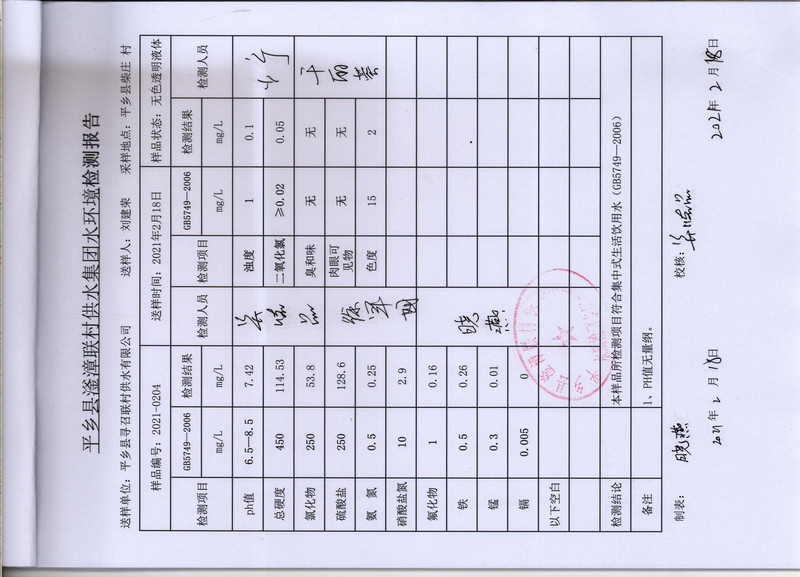 平乡县滏漳联村供水集团水环境检测报告
送样单位：平乡县寻召联村供水有限公司 送样人：刘建荣 采样地点：平乡县柴庄 村
样品编号：2021-0204 送样时间：2021年2月18日 样品状态：无色透明液体
检测项目 GB5749—2006 检测结果 检测人员 检测项目 GB5749—2006 检测结果 检测人员
mg/L mg/L mg/L mg/L
ph值 6.5—8.5 7.42 浊度 1 0.1
总硬度 450 114.53 二氧化氯 ≥0.02 0.05
氯化物 250 53.8 臭和味 无 无
硫酸盐 250 128.6 肉眼可见物 无 无
氨 氮 0.5 0.25 色度 15 2
硝酸盐氮 10 2.9
氟化物 1 0.16
铁 0.5 0.26 晓燕
锰 0.3 0.01
镉 0.005 0
以下空白
检测结论 本样品所检测项目符合集中式生活饮用水（GB5749—2006）
备注 1、PH值无量纲。
制表： 晓燕 校核：
2021年 2 月 18日 2021年 2 月 18日